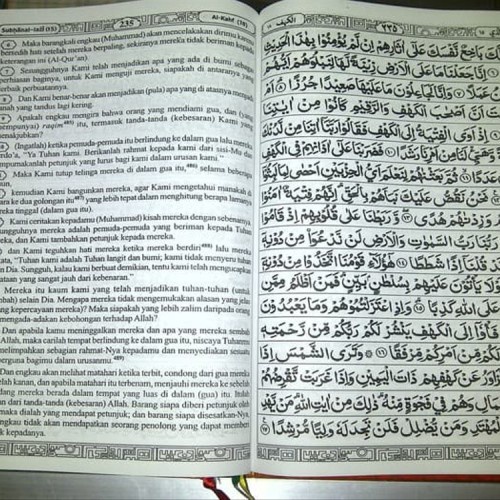 Subhanal-lazi (15) 235 Al-Kahf (18)
6 Maka barangkali engkau (Muhammad) akan mencelakakan dirimu karena
bersedih hati setelah mereka berpaling, sekiranya mereka tidak beriman kepada
keterangan ini (Al-Qur'an).
7 Sesungguhnya Kami telah menjadikan apa yang ada di bumi sebagai
perhiasan baginya, untuk Kami menguji mereka, siapakah di antaranya yang
terbaik perbuatannya.
8 Dan Kami benar-benar akan menjadikan (pula) apa yang di atasnya menjadi
tanah yang tandus lagi kering.
9 Apakah engkau mengira bahwa orang yang mendiami gua, dan (yang
mempunyai) raqim itu, termasuk tanda-tanda (kebesaran) Kami yang
menakjubkan?
10 (Ingatlah) ketika pemuda-pemuda itu berlindung ke dalam gua lalu mereka
berdo'a, "Ya Tuhan kami. Berikanlah rahmat kepada kami dari sisi-Mu dan
sempurnakanlah petunjuk yang lurus bagi kami dalam urusan kami."
11 Maka Kami tutup telinga mereka di dalam gua itu, selama beberapa
tahun,
12 kemudian Kami bangunkan mereka, agar Kami mengetahui manakah di
antara ke dua golongan itu yang lebih tepat dalam menghitung berapa lamanya
mereka tinggal (dalam gua itu).
13 Kami ceritakan kepadamu (Muhammad) kisah mereka dengan sebenarnya.
Sesungguhnya mereka adalah pemuda-pemuda yang beriman kepada Tuhan
mereka, dan Kami tambahkan petunjuk kepada mereka.
14 dan Kami teguhkan hati mereka ketika mereka berdiri lalu mereka
berkata, "Tuhan kami adalah Tuhan langit dan bumi; kami tidak menyeru tuhan
selain Dia. Sungguh, kalau kami berbuat demikian, tentu kami telah mengucapkan
perkataan yang sangat jauh dari kebenaran."
15 Mereka itu kaum kami yang telah menjadikan tuhan-tuhan (untuk
disembah) selain Dia. Mengapa mereka tidak mengemukakan alasan yang jelas
tentang kepercayaan mereka? Maka siapakah yang lebih zalim daripada orang
yang mengada-adakan kebohongan terhadap Allah?
16 Dan apabila kamu meninggalkan mereka dan apa yang mereka sembah
selain Allah, maka carilah tempat berlindung ke dalam gua itu, niscaya Tuhanmu
akan melimpahkan sebagian rahmat-Nya kepadamu dan menyediakan sesuatu
yang berguna bagimu dalam urusanmu
17 Dan engkau akan melihat matahari ketika terbit, condong dari gua mereka
ke sebelah kanan, dan apabila matahari itu terbenam, menjauhi mereka ke sebelah
kiri sedang mereka berada dalam tempat yang luas di dalam (gua) itu. Itulah
sebagian dari tanda-tanda (kebesaran) Allah. Barang siapa diberi petunjuk oleh
Allah, maka dialah yang mendapat petunjuk; dan barang siapa disesatkan-Nya,
maka engkau tidak akan mendapatkan seorang penolong yang dapat memberi
petunjuk kepadanya.
٢٣٥ الكهف ١٨
بَاخِعٌ نَّفْسَكَ عَلٰٓى اٰثَارِهِمْ اِنْ لَّمْ يُؤْمِنُوْا بِهٰذَا الْحَدِيْثِ
اِنَّا جَعَلْنَا مَا عَلَى الْاَرْضِ زِيْنَةً لَّهَا لِنَبْلُوَهُمْ اَيُّهُمْ
عَمَلًا ﴿٧﴾ وَاِنَّا لَجَاعِلُوْنَ مَا عَلَيْهَا صَعِيْدًا جُرُزًا ﴿٨﴾ اَمْ
اَنَّ اَصْحٰبَ الْكَهْفِ وَالرَّقِيْمِ كَانُوْا مِنْ اٰيٰتِنَا
اِذْ اَوَى الْفِتْيَةُ اِلَى الْكَهْفِ فَقَالُوْا رَبَّنَآ اٰتِنَا مِنْ لَّدُنْكَ
وَّهَيِّئْ لَنَا مِنْ اَمْرِنَا رَشَدًا ﴿١٠﴾ فَضَرَبْنَا عَلٰٓى اٰذَانِهِمْ فِى الْكَهْفِ
عَدَدًا ﴿١١﴾ ثُمَّ بَعَثْنٰهُمْ لِنَعْلَمَ اَيُّ الْحِزْبَيْنِ اَحْصٰى لِمَا لَبِثُوْٓا
نَحْنُ نَقُصُّ عَلَيْكَ نَبَاَهُمْ بِالْحَقِّ اِنَّهُمْ فِتْيَةٌ اٰمَنُوْا
وَزِدْنٰهُمْ هُدًى ﴿١٣﴾ وَّرَبَطْنَا عَلٰى قُلُوْبِهِمْ اِذْ قَامُوْا
رَبُّنَا رَبُّ السَّمٰوٰتِ وَالْاَرْضِ لَنْ نَّدْعُوَا۟ مِنْ دُوْنِهٖٓ
قُلْنَآ اِذًا شَطَطًا ﴿١٤﴾ هٰٓؤُلَاۤءِ قَوْمُنَا اتَّخَذُوْا مِنْ دُوْنِهٖٓ
لَوْلَا يَأْتُوْنَ عَلَيْهِمْ بِسُلْطٰنٍ بَيِّنٍ فَمَنْ اَظْلَمُ مِمَّنِ
عَلَى اللّٰهِ كَذِبًا ﴿١٥﴾ وَاِذِ اعْتَزَلْتُمُوْهُمْ وَمَا يَعْبُدُوْنَ
فَأْوٗٓا اِلَى الْكَهْفِ يَنْشُرْ لَكُمْ رَبُّكُمْ مِّنْ رَّحْمَتِهٖ
مِّنْ اَمْرِكُمْ مِّرْفَقًا ﴿١٦﴾ وَتَرَى الشَّمْسَ اِذَا
تَّزٰوَرُ عَنْ كَهْفِهِمْ ذَاتَ الْيَمِيْنِ وَاِذَا غَرَبَتْ تَّقْرِضُهُمْ
الشِّمَالِ وَهُمْ فِيْ فَجْوَةٍ مِّنْهُ ذٰلِكَ مِنْ اٰيٰتِ اللّٰهِ مَنْ يَّهْدِ
الْمُهْتَدِ وَمَنْ يُّضْلِلْ فَلَنْ تَجِدَ لَهٗ وَلِيًّا مُّرْشِدًا ﴿١٧﴾